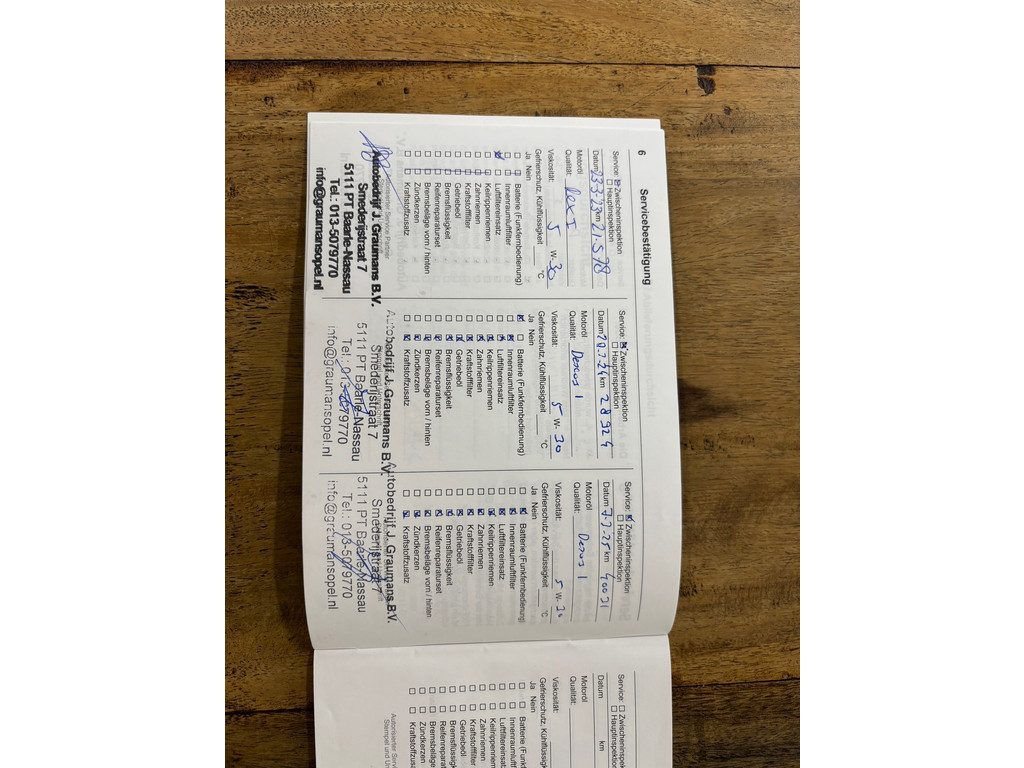 6
Servicebestätigung
Service: Zwischeninspektion
Hauptinspektion
Datum km 21.578
Motoröl
Qualität:
Viskosität: 5 W- 30
Gefrierschutz, Kühlflüssigkeit °C
Ja Nein
Batterie (Funkfernbedienung)
Innenraumluftfilter
Luftfiltereinsatz
Keilrippenriemen
Zahnriemen
Kraftstofffilter
Getriebeöl
Bremsflüssigkeit
Reifenreparaturset
Bremsbeläge vorn / hinten
Zündkerzen
Kraftstoffzusatz
Autorisierter Service Partner
Autobedrijf J. Graumans B.V.
Smederijstraat 7
5111 PT Baarle-Nassau
Tel.: 013-5079770
info@graumansopel.nl
Service: Zwischeninspektion
Hauptinspektion
Datum km 28924
Motoröl
Qualität: Dexos 1
Viskosität: 5 W- 30
Gefrierschutz, Kühlflüssigkeit °C
Ja Nein
Batterie (Funkfernbedienung)
Innenraumluftfilter
Luftfiltereinsatz
Keilrippenriemen
Zahnriemen
Kraftstofffilter
Getriebeöl
Bremsflüssigkeit
Reifenreparaturset
Bremsbeläge vorn / hinten
Zündkerzen
Kraftstoffzusatz
Autobedrijf J. Graumans B.V.
Smederijstraat 7
5111 PT Baarle-Nassau
Tel.: 013-5079770
info@graumansopel.nl
Service: Zwischeninspektion
Hauptinspektion
Datum km
Motoröl
Qualität: Dexos 1
Viskosität: 5 W- 30
Gefrierschutz, Kühlflüssigkeit °C
Ja Nein
Batterie (Funkfernbedienung)
Innenraumluftfilter
Luftfiltereinsatz
Keilrippenriemen
Zahnriemen
Kraftstofffilter
Getriebeöl
Bremsflüssigkeit
Reifenreparaturset
Bremsbeläge vorn / hinten
Zündkerzen
Kraftstoffzusatz
Autobedrijf J. Graumans B.V.
Smederijstraat 7
5111 PT Baarle-Nassau
Tel.: 013-5079770
info@graumansopel.nl
Service: Zwischeninspe
Hauptinspekt
Datum km
Motoröl
Qualität:
Viskosität:
Gefrierschutz, Kühlflüssig
Ja Nein
Batterie (Funk
Innenraumluftf
Luftfiltereinsat
Keilrippenrieme
Zahnriemen
Kraftstofffilter
Getriebeöl
Bremsflüssigke
Reifenreparatu
Bremsbeläge vo
Zündkerzen
Kraftstoffzusa
Autorisierter Servi
Stempel und Un